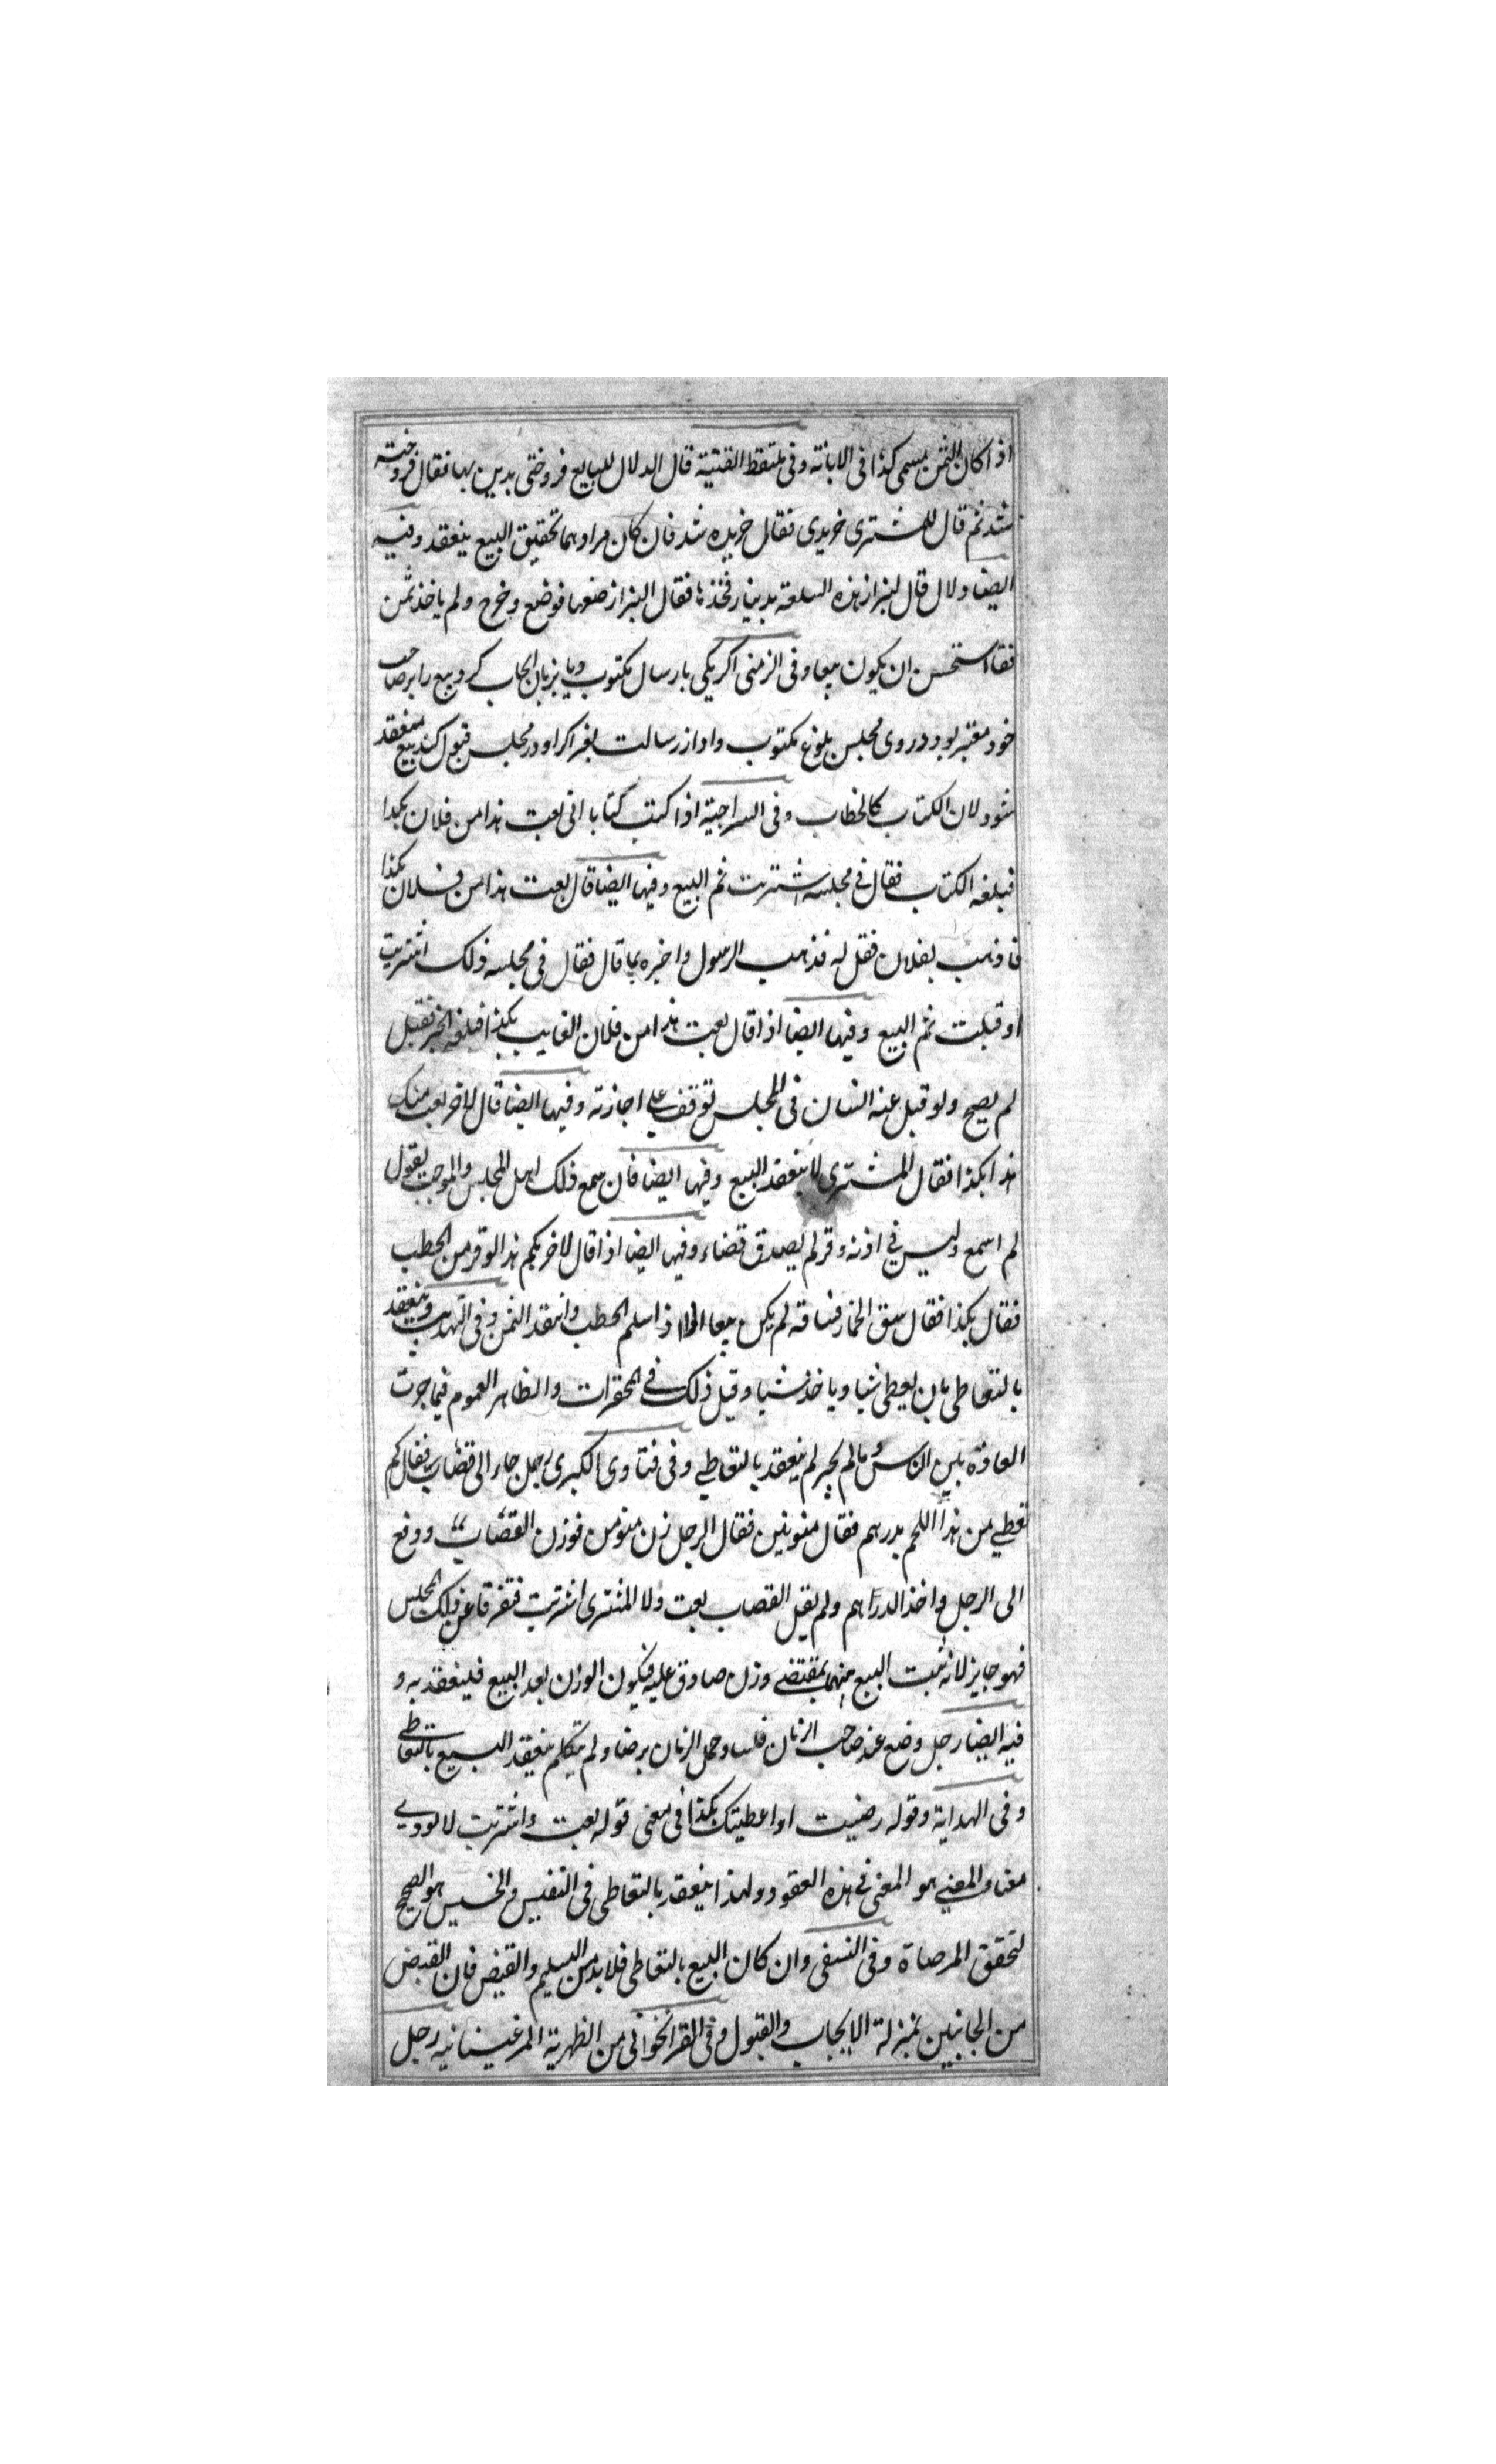 اذا كان الثمن مسمى كذا فى الابانة وفى ملتقط القنية قال الدلال للبايع فروختى بدين بها فقال فروخته
شد ثم قال للمشترى خريدى فقال خريده شد فان كان مرادهما تحقيق البيع ينعقد وفيه
ايضا دلال قال لبزاز هذه السلعة بدينار فخذها فقال البزاز ضعها فوضع وخرج ولم ياخذ ثمن
استحسن ان يكون بيعا وفى اكر يكى بارسال مكتوب ويا بزبان ايجاب كرد بيع را بر صاحب
خود معتبر بود در وى مجلس بلوغ مكتوب وادا از رسالت اكر او در مجلس قبول كند بيع منعقد
شود لان الكتاب كالخطاب وفى السراجية اذا كتب كتابا انى بعت هذا من فلان بكذا
فبلغه الكتاب فقال فى مجلسه اشتريت تم البيع وفيها ايضا قال بعت هذا من فلان بكذا
فاذهب بفلان فقل له فذهب الرسول واخبره بما قال فقال فى مجلسه ذلك اشتريت
او قبلت تم البيع وفيها ايضا اذا قال بعت هذا من فلان الغايب بكذا فبلغه الخبر فقبل
لم يصح ولو قبل عنه انسان فى المجلس توقف على اجازته وفيها ايضا قال لاخر بعت منك
هذا بكذا فقال المشترى لا ينعقد البيع وفيها ايضا فان سمع ذلك اهل المجلس والموجب يقول
لم اسمع وليس فى اذنه وقر لم يصدق قضاء وفيها ايضا اذا قال لاخر بكم هذا الوقر من الحطب
فقال بكذا فقال سق الحمار فساقه لم يكن بيعا الا اذا سلم الحطب وانتقد الثمن وفى التهذيب وينعقد
بالتعاطى بان يعطى شيا وياخذ شيا وقيل ذلك فى المحقرات والظاهر العموم فيما جرت
العادة بين الناس وما لم يجر لم ينعقد بالتعاطى وفى فتاوى الكبرى رجل جاء الى قصاب فقال كم
تعطى من هذا اللحم بدرهم فقال منوين فقال الرجل زن منوين فوزن القصاب ودفع
الى الرجل واخذ الدراهم ولم يقل القصاب بعت ولا المشترى اشتريت فتفرقا عن ذلك المجلس
فهو جايز لانه ثبت البيع منهما بمقتضى وزن صادق عليه فيكون الوزن بعد البيع فينعقد به و
فيه ايضا رجل وضع عند صاحب الرمان فلسا وحمل الرمان برضا ولم يتكلم ينعقد البيع بالتعاطى
وفى الهداية وقوله رضيت او اعطيتك بكذا فى معنى قوله بعت واشتريت لانه يودى
معناه والمعنى هو المعنى فى هذه العقود ولهذا ينعقد بالتعاطى فى النفيس والخسيس هو الصحيح
لتحقق المرضاة وفى النسفى وان كان البيع بالتعاطى فلا بد من التسليم والقبض فان القبض
من الجانبين بمنزلة الايجاب والقبول وفى القراخوانى من الظهرية المرغينانيه رجل